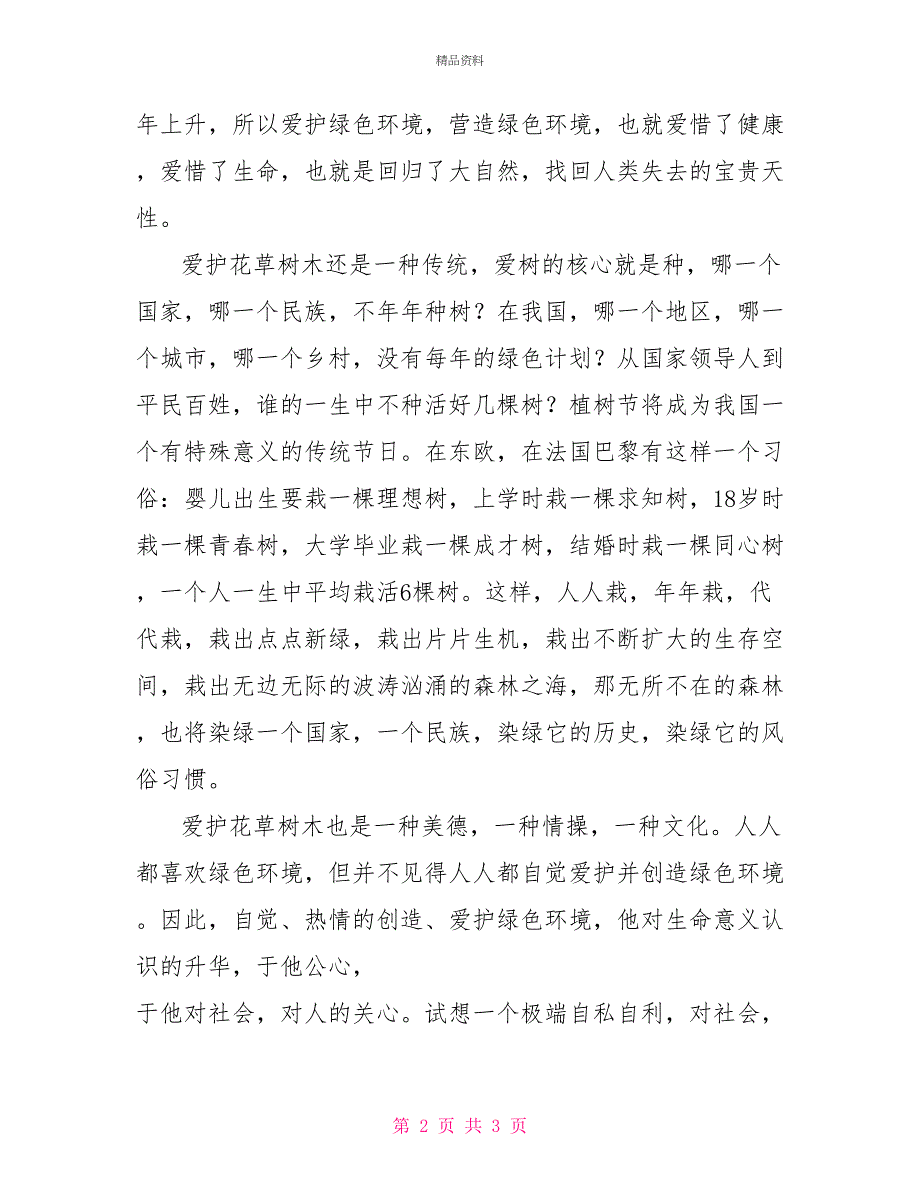 精品资料
年上升，所以爱护绿色环境，营造绿色环境，也就爱惜了健康
，爱惜了生命，也就是回归了大自然，找回人类失去的宝贵天
性。
爱护花草树木还是一种传统，爱树的核心就是种，哪一个
国家，哪一个民族，不年年种树？在我国，哪一个地区，哪一
个城市，哪一个乡村，没有每年的绿色计划？从国家领导人到
平民百姓，谁的一生中不种活好几棵树？植树节将成为我国一
个有特殊意义的传统节日。在东欧，在法国巴黎有这样一个习
俗：婴儿出生要栽一棵理想树，上学时栽一棵求知树，18岁时
栽一棵青春树，大学毕业栽一棵成才树，结婚时栽一棵同心树
，一个人一生中平均栽活6棵树。这样，人人栽，年年栽，代
代栽，栽出点点新绿，栽出片片生机，栽出不断扩大的生存空
间，栽出无边无际的波涛汹涌的森林之海，那无所不在的森林
，也将染绿一个国家，一个民族，染绿它的历史，染绿它的风
俗习惯。
爱护花草树木也是一种美德，一种情操，一种文化。人人
都喜欢绿色环境，但并不见得人人都自觉爱护并创造绿色环境
。因此，自觉、热情的创造、爱护绿色环境，他对生命意义认
识的升华，于他公心，
于他对社会，对人的关心。试想一个极端自私自利，对社会，
第 2 页 共 3 页